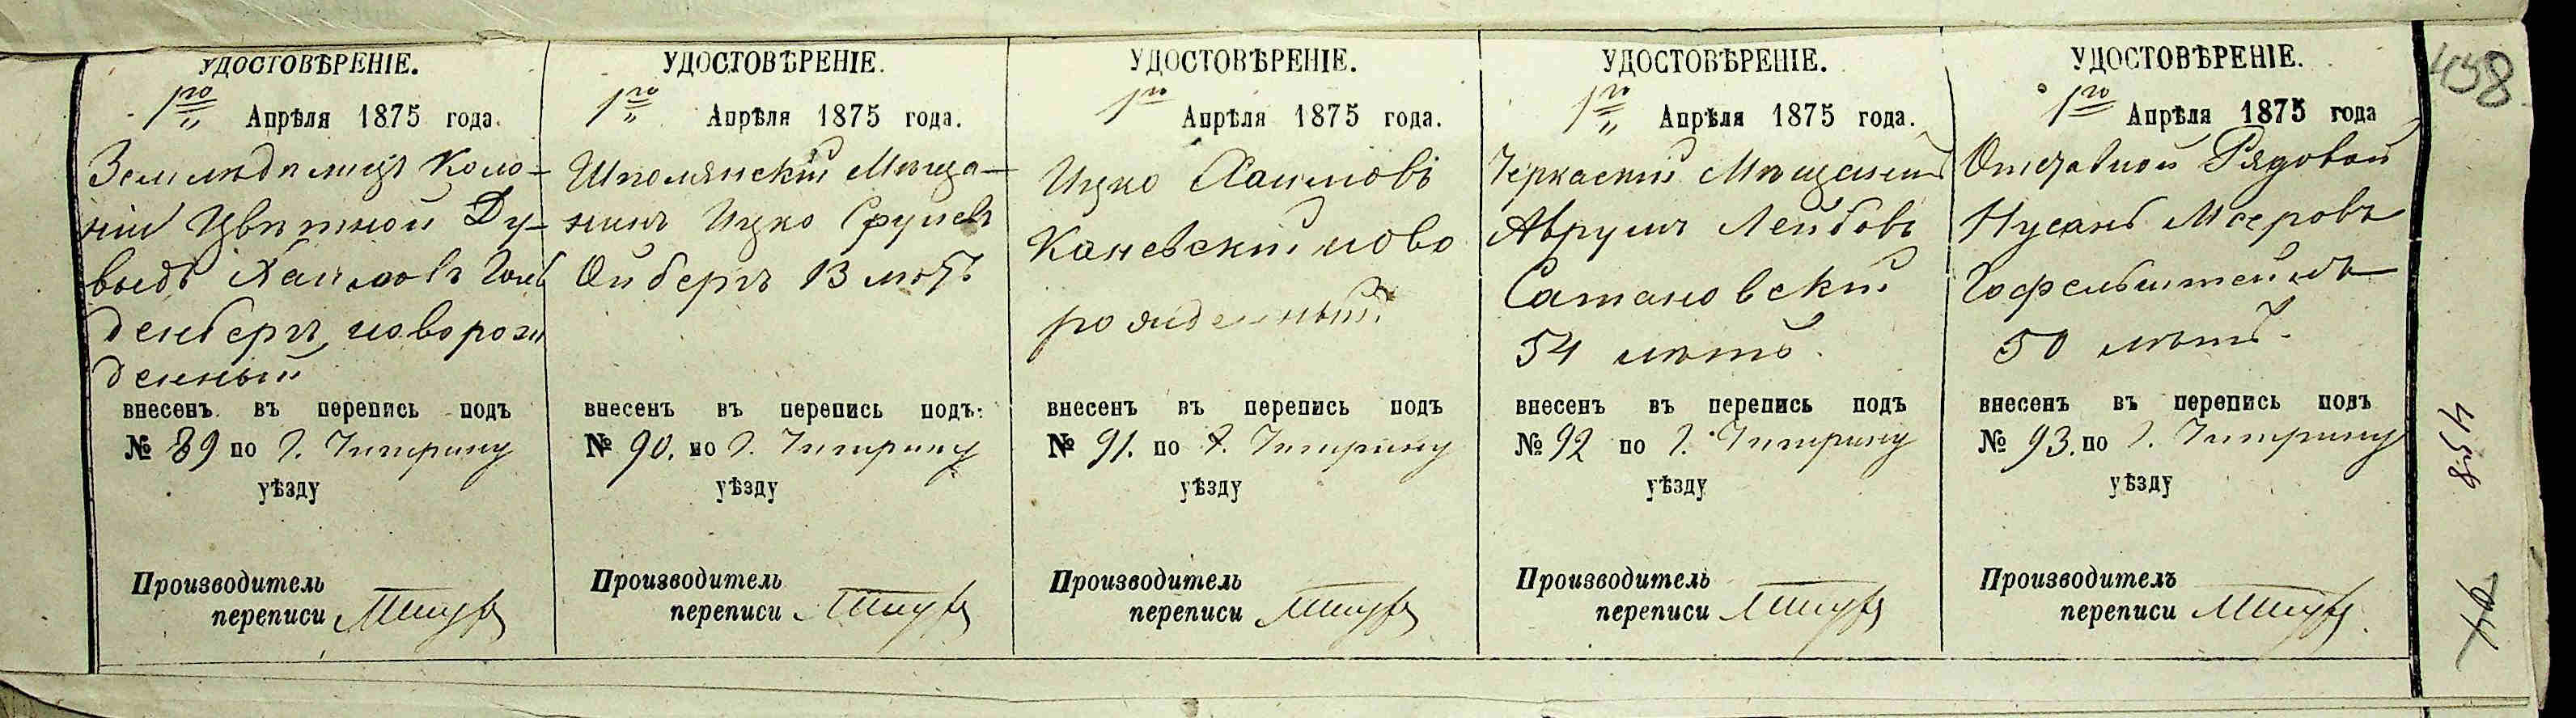 УДОСТОВѢРЕНІЕ.
1го Апрѣля 1875 года.
Земледѣлецъ Коло-
ніи Цвѣтной Ду-
выдъ Хаимовъ Голь
денбергъ, новорож
денный
внесенъ въ перепись подъ
№ 89 по г. Чигрину
уѣзду
Производитель
переписи
УДОСТОВѢРЕНІЕ.
1го Апрѣля 1875 года.
Шполянскій Мѣща-
нинъ Ицко Срулевъ
Ойбергъ 13 лѣтъ
внесенъ въ перепись подъ
№ 90. по г. Чигрину
уѣзду
Производитель
переписи
УДОСТОВѢРЕНІЕ.
1го Апрѣля 1875 года.
Ицко Хаимовъ
Каневскій ново
рожденный.
внесенъ въ перепись подъ
№ 91. по г. Чигрину
уѣзду
Производитель
переписи
УДОСТОВѢРЕНІЕ.
1го Апрѣля 1875 года.
Черкаскій Мѣщанинъ
Аврумъ Лейбовъ
Сатановскій
54 лѣтъ.
внесенъ въ перепись подъ
№ 92 по г. Чигрину
уѣзду
Производитель
переписи
УДОСТОВѢРЕНІЕ.
1го Апрѣля 1875 года
Отставной Рядовой
Нусанъ Мееровъ
Гофельштейнъ
50 лѣтъ.
внесенъ въ перепись подъ
№ 93. по г. Чигрину
уѣзду
Производитель
переписи
458
458